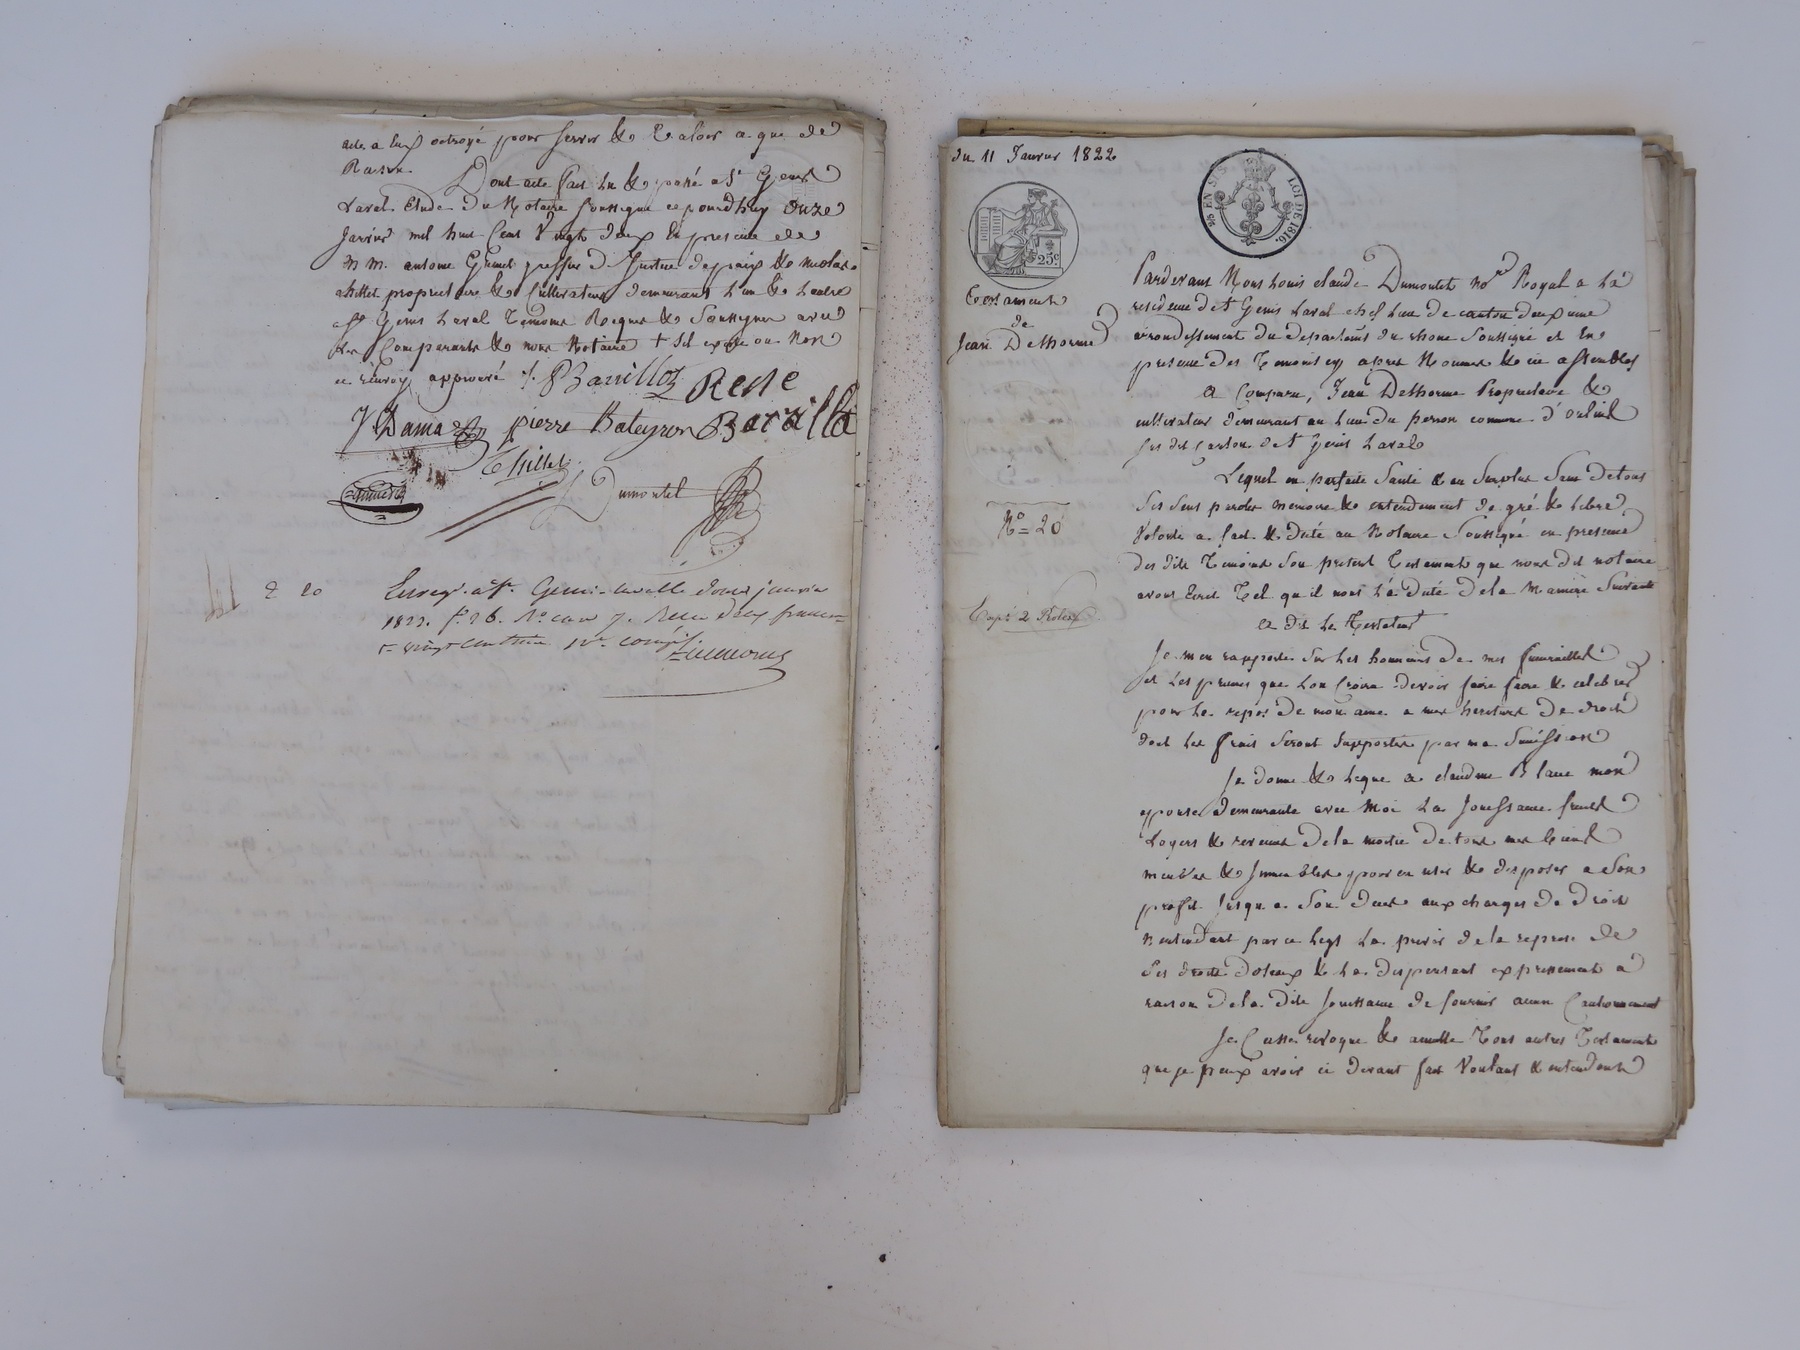 acte a eux octroyé pour servir & valoir a que de
Raison.
Dont acte fait lu & passé a St Genis
Laval Etude du Notaire soussigné ce jourd'huy onze
Janvier mil huit Cent Vingt deux En presence de
M M. antoine greffier de Justice de paix & nicolas
thillet proprietaire & Cultivateur demeurant L'un & Lautre
a St Genis Laval Temoins Requis & Soussignes avec
Les Comparants & nous Notaire +
ce renvoy approuvé ./. Barrillot Reste
J Damas pierre Batayron Barillot
Thillet
Dumontet
2 20
Enreg. a St. Genis-laval le douze janvier
1822. f. 26. Rº. case 7. Recu deux francs
vingt centimes
du 11 Janvier 1822
25c
EN SUS
LOI DE 1816.
Testament
de
Jean Delhorme
No = 20
Expé 2 Roles
Pardevant Nous Louis claude Dumontet nore Royal a La
residence de St Genis Laval chef Lieu de canton deuxieme
arrondissement du departement du rhone Soussigné et En
presence des Temoins cy apres Nommés &
A Comparu, Jean Delhorme Proprietaire &
cultivateur demeurant au Lieu du perron commune d'oullins
sus dit Canton de St Genis Laval
Lequel en parfaite Santé & au Surplus Sain de tous
Ses Sens parole memoire & entendement de gré & Libre
Volonté a fait & dicté au Notaire Soussigné en presence
des dits Temoins Son present Testament que nous dit notaire
avons Ecrit Tel qu il nous L'a dicté de la Maniere Suivante
a dit Le Testateur
Je men rapporte Sur Les honneurs de mes funerailles
et Les prieres que Lon Croira devoir faire faire & celebrer
pour Le repos de mon ame a mes heritiers de droit
dont Les frais Seront Supportés par ma Succession
Je donne & Legue a claudine Blanc mon
epouse demeurante avec Moi La Jouissance fruits
Loyers & revenus de la moitie de tous mes biens
meubles & Immeubles pour en user & disposer a Son
profit Jusqu a Son deces aux charges de droit
N'entendant par ce Legs La priver de la reprise de
Ses droits dotaux & La dispensant expressement a
raison de la dite Jouissance de fournir aucun Cautionnement
Je Casse revoque & annulle Tous autres Testaments
que je peux avoir ci devant fait Voulant & entendant